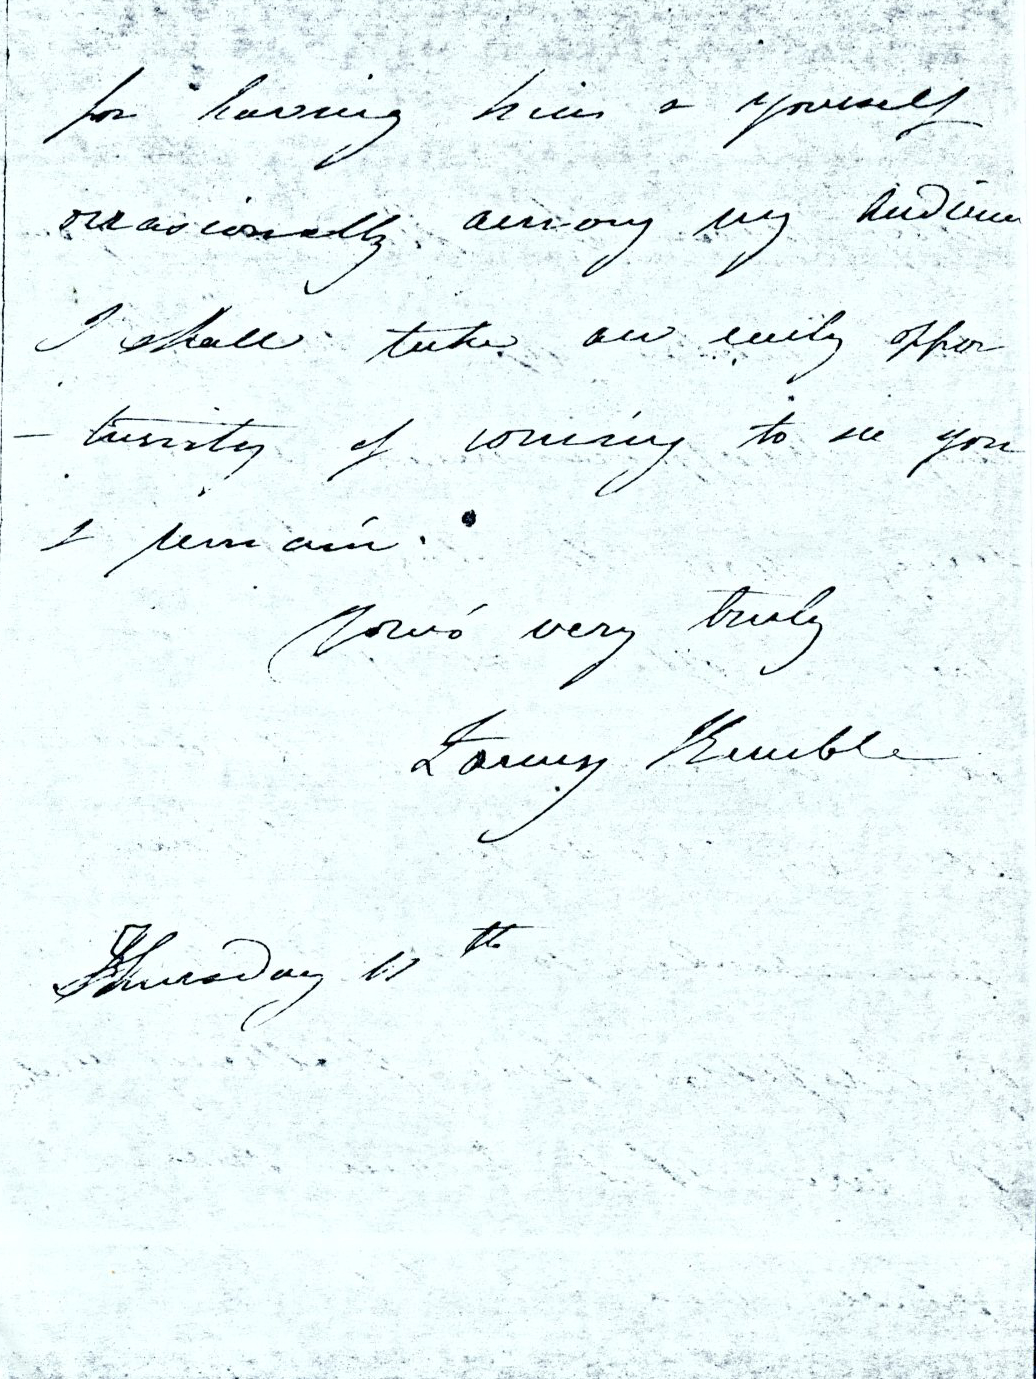 for having him & yourself
occasionally among my Audience
I shall take an early oppor
- tunity of coming to see you
& remain.
Yours very truly
Fanny Kemble
Thursday 11th